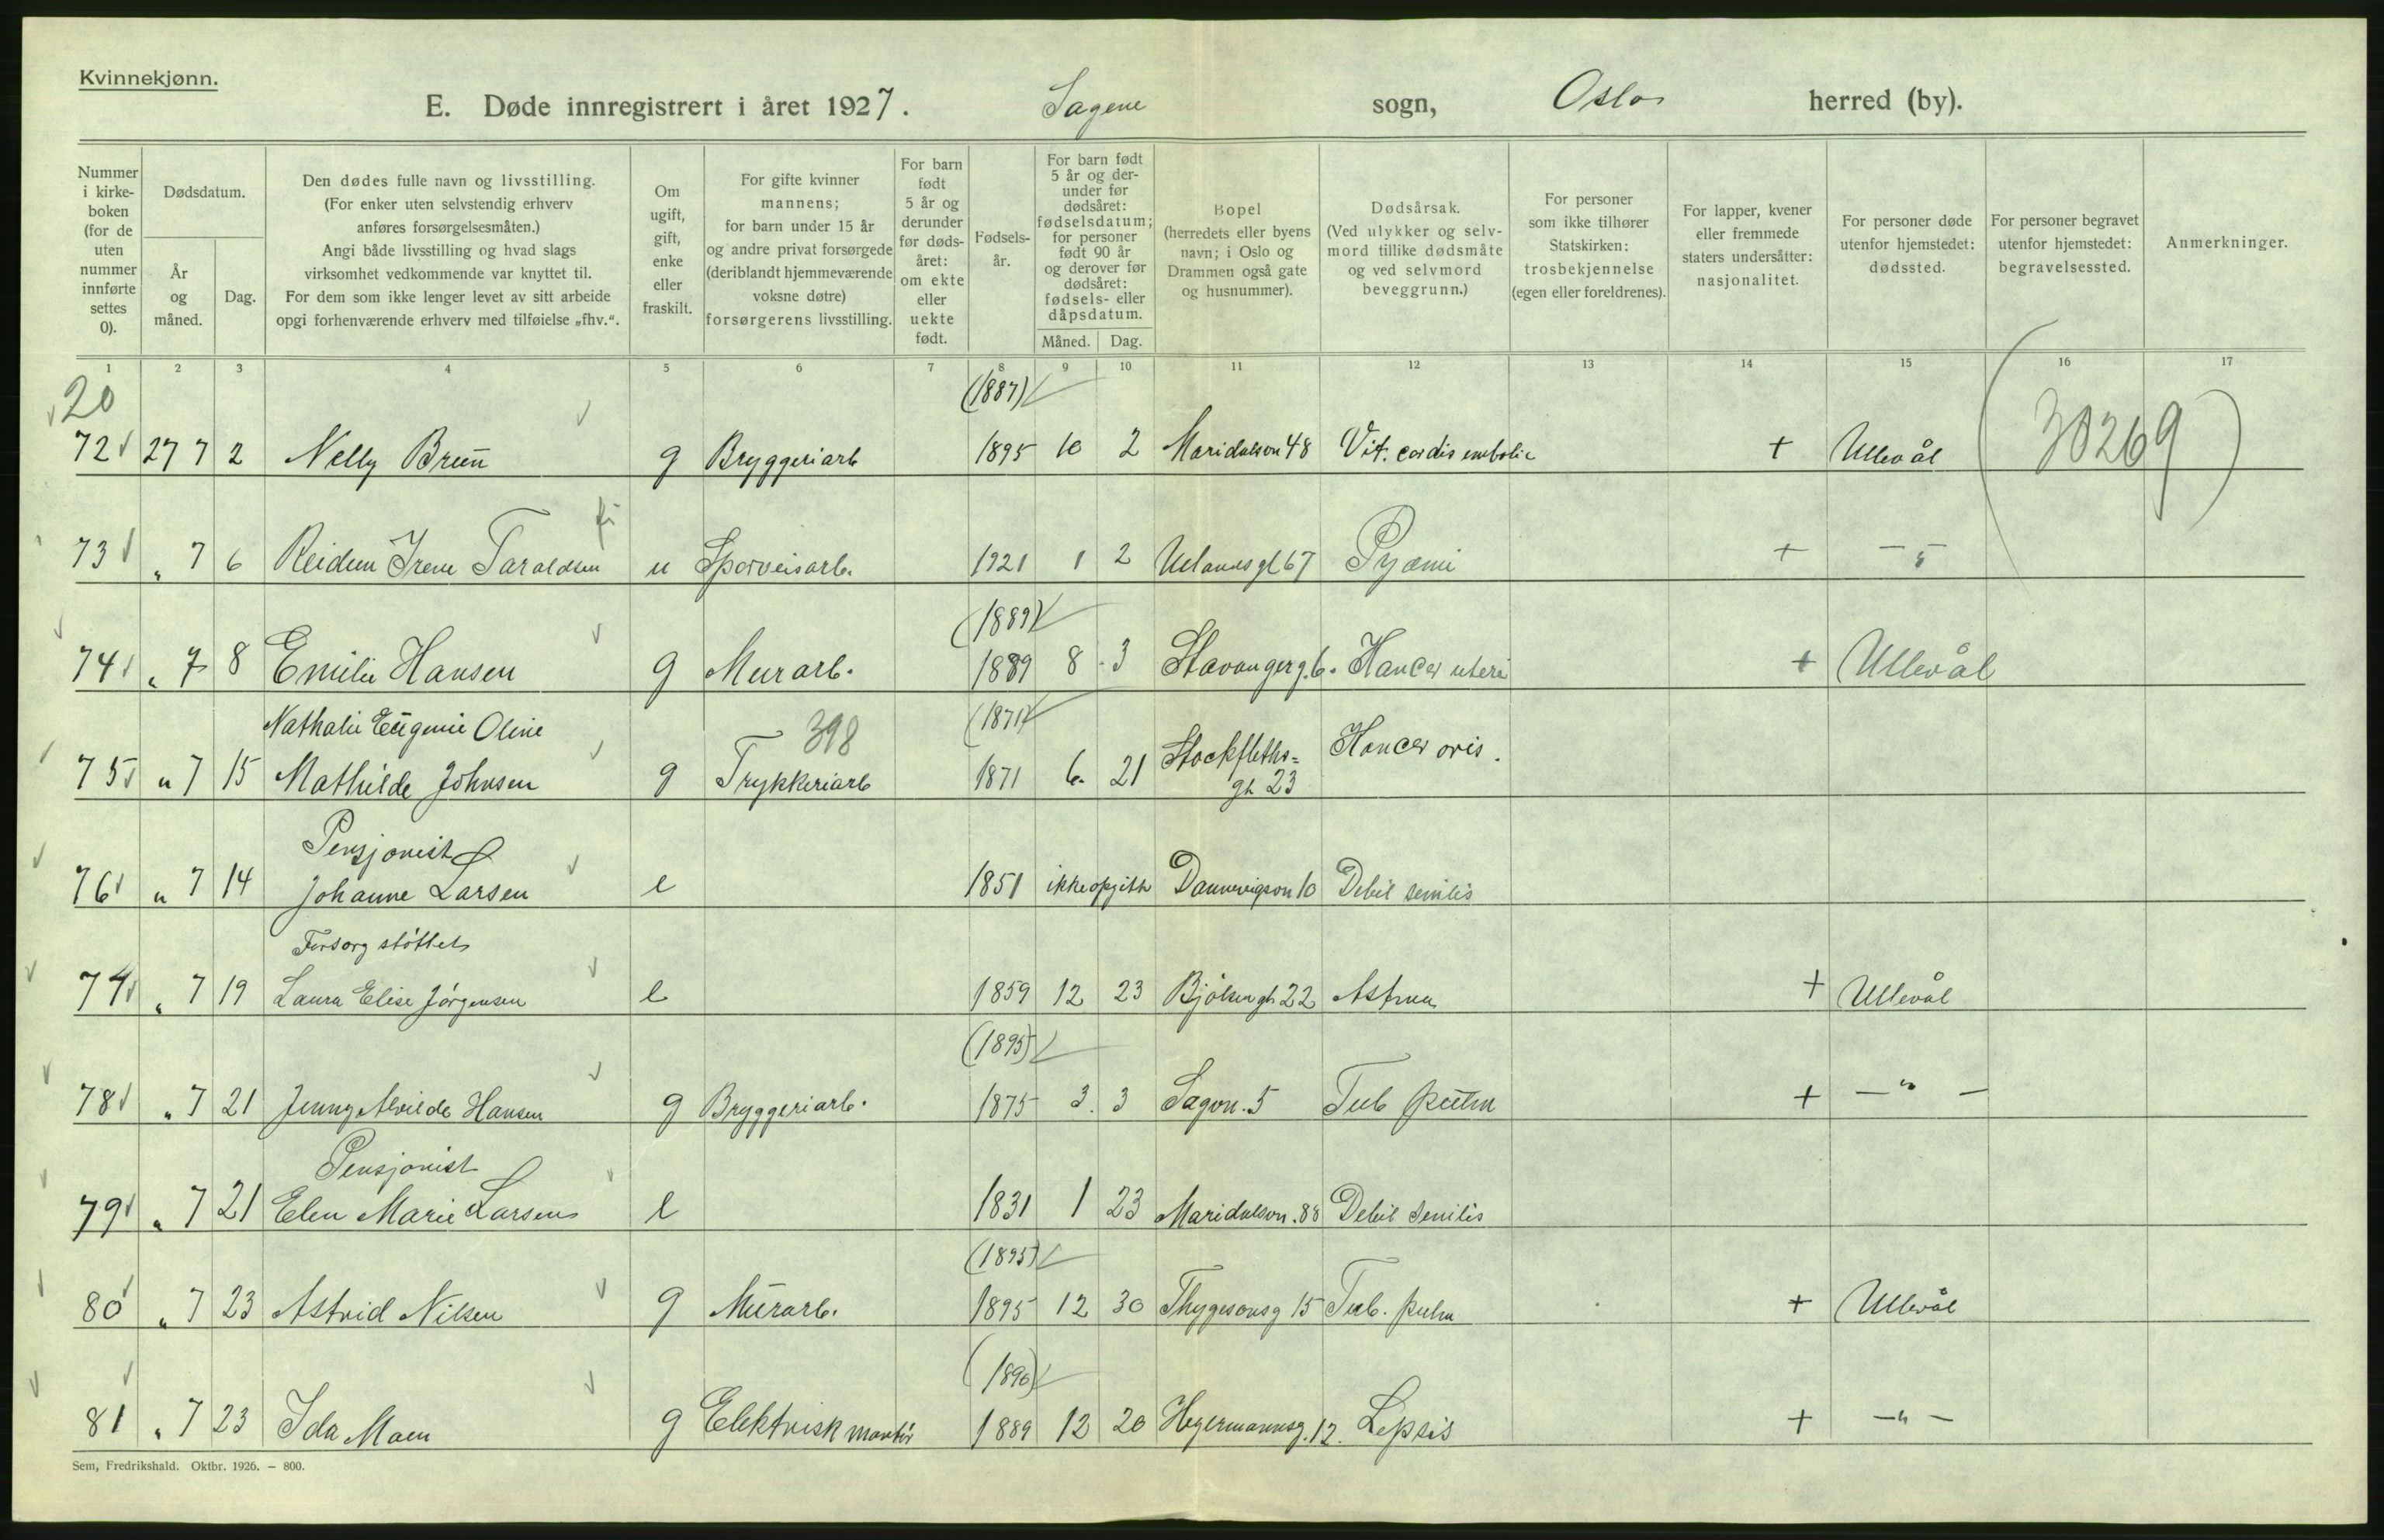 Kvinnekjønn.
E. Døde innregistrert i året 1927. Sagene sogn, Oslo herred (by).
Nummer i kirke- boken (for de uten nummer innførte settes 0).
Dødsdatum.
År og måned.
Dag.
Den dødes fulle navn og livsstilling.
(For enker uten selvstendig erhverv
anføres forsørgelsesmåten.)
Angi både livsstilling og hvad slags
virksomhet vedkommende var knyttet til.
For dem som ikke lenger levet av sitt arbeide
opgi forhenværende erhverv med tilføielse „fhv.“.
Om ugift, gift, enke eller fraskilt.
For gifte kvinner
mannens;
for barn under 15 år
og andre privat forsørgede
(deriblandt hjemmeværende
voksne døtre)
forsørgerens livsstilling.
For barn født 5 år og derunder før døds- året: om ekte eller uekte født.
Fødsels- år.
For barn født 5 år og der- under før dødsåret: fødselsdatum; for personer født 90 år og derover før dødsåret: fødsels- eller dåpsdatum.
Måned. Dag.
Bopel
(herredets eller byens
navn; i Oslo og
Drammen også gate
og husnummer).
Dødsårsak.
(Ved ulykker og selv-
mord tillike dødsmåte
og ved selvmord
beveggrunn.)
For personer
som ikke tilhører
Statskirken:
trosbekjennelse
(egen eller foreldrenes).
For lapper, kvener
eller fremmede
staters undersåtter:
nasjonalitet.
For personer døde
utenfor hjemstedet:
dødssted.
For personer begravet
utenfor hjemstedet:
begravelsessted.
Anmerkninger.
1 2 3 4 5 6 7 8 9 10 11 12 13 14 15 16 17
20 (1887)
72 27 7 2 Nelly Brun g Bryggeriarb 1895 10 2 Maridalsvn 48 Vit. cordis embolie + Ullevål (30269)
73 " 7 6 Reidun Irene Taraldsen u Sporveisarb. 1921 1 2 Uelandsgt 67 Pyæmi + - " -
(1889)
74 " 7 8 Emilie Hansen g Murarb. 1889 8 3 Stavangerg. 6. Kancer uteri + Ullevål
Nathalie Eugenie Oline 398 (1871)
75 " 7 15 Mathilde Johnsen g Trykkeriarb 1871 6. 21 Stockfleths= gt 23 Kancer oris.
Pensjonist
76 " 7 14 Johanne Larsen e 1851 ikke opgitt Dannevigsvn 10 Debil senilis
Forsorg støttet
77 " 7 19 Laura Elise Jörgensen e 1859 12 23 Bjølsengt 22 Astma + Ullevål
(1895)
78 " 7 21 Jenny Alvilde Hansen g Bryggeriarb. 1875 3. 3 Sagvn. 5 Tub pulm + - " -
Pensjonist
79 " 7 21 Elen Marie Larsen e 1831 1 23 Maridalsvn. 88 Debil senilis
(1895)
80 " 7 23 Astrid Nilsen g Murarb. 1895 12 30 Thygesonsg 15 Tub. pulm + Ullevål
(1890)
81 " 7 23 Ida Moen g Elektrisk montør 1889 12 20 Hegermannsg. 12. Sepsis + - " -
Sem, Fredrikshald. Oktbr. 1926. — 800.